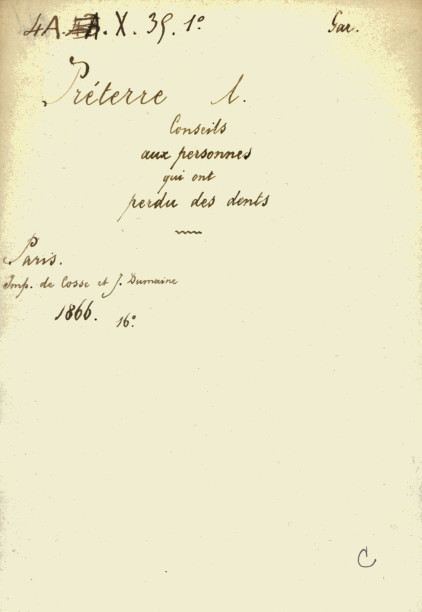 4A. X. 35. 1º Gar.
Préterre A.
Conseils
aux personnes
qui ont
perdu des dents
Paris.
Imp. de Cosse et J. Dumaine
1866. 16º
C